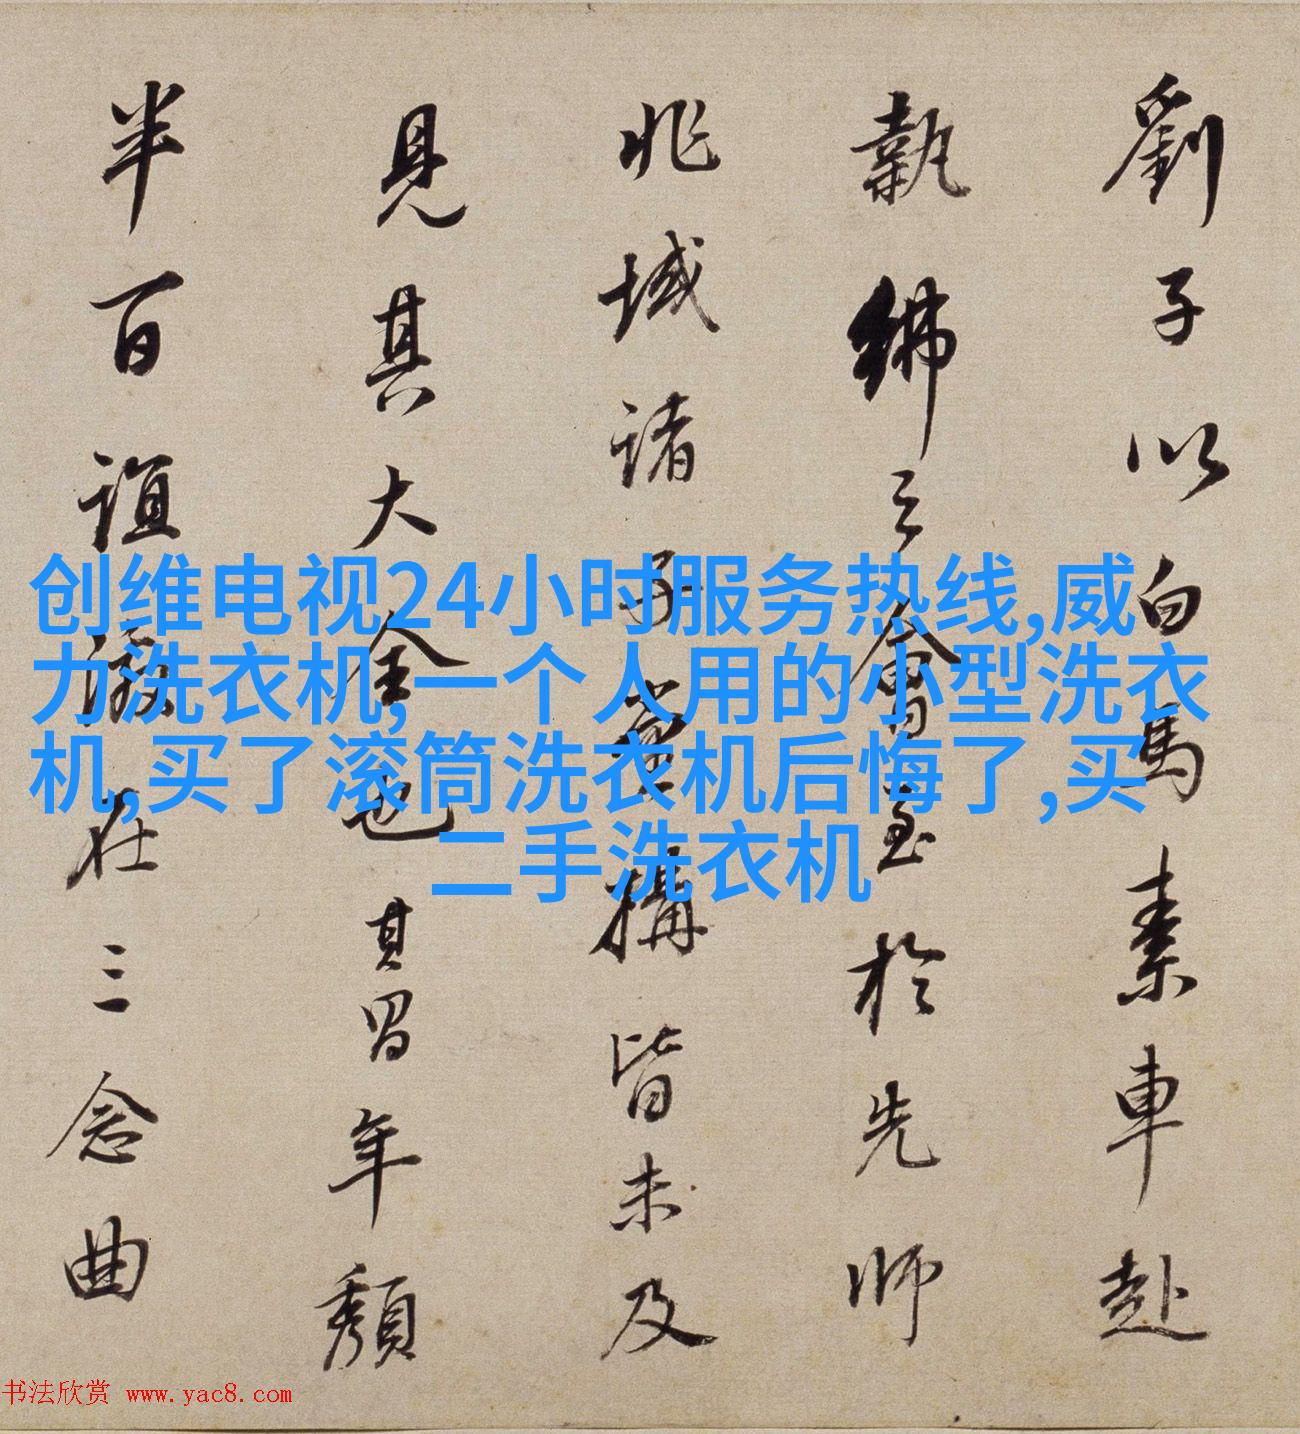 劉子以白馬素車赴
執紼之會望於先師
兆域諸子堂構皆未及
見其大全也其習年頹
半百誼激在三念曲
创维电视24小时服务热线,威
力洗衣机,一个人用的小型洗衣
机,买了滚筒洗衣机后悔了,买
二手洗衣机
书法欣赏 www.yac8.com